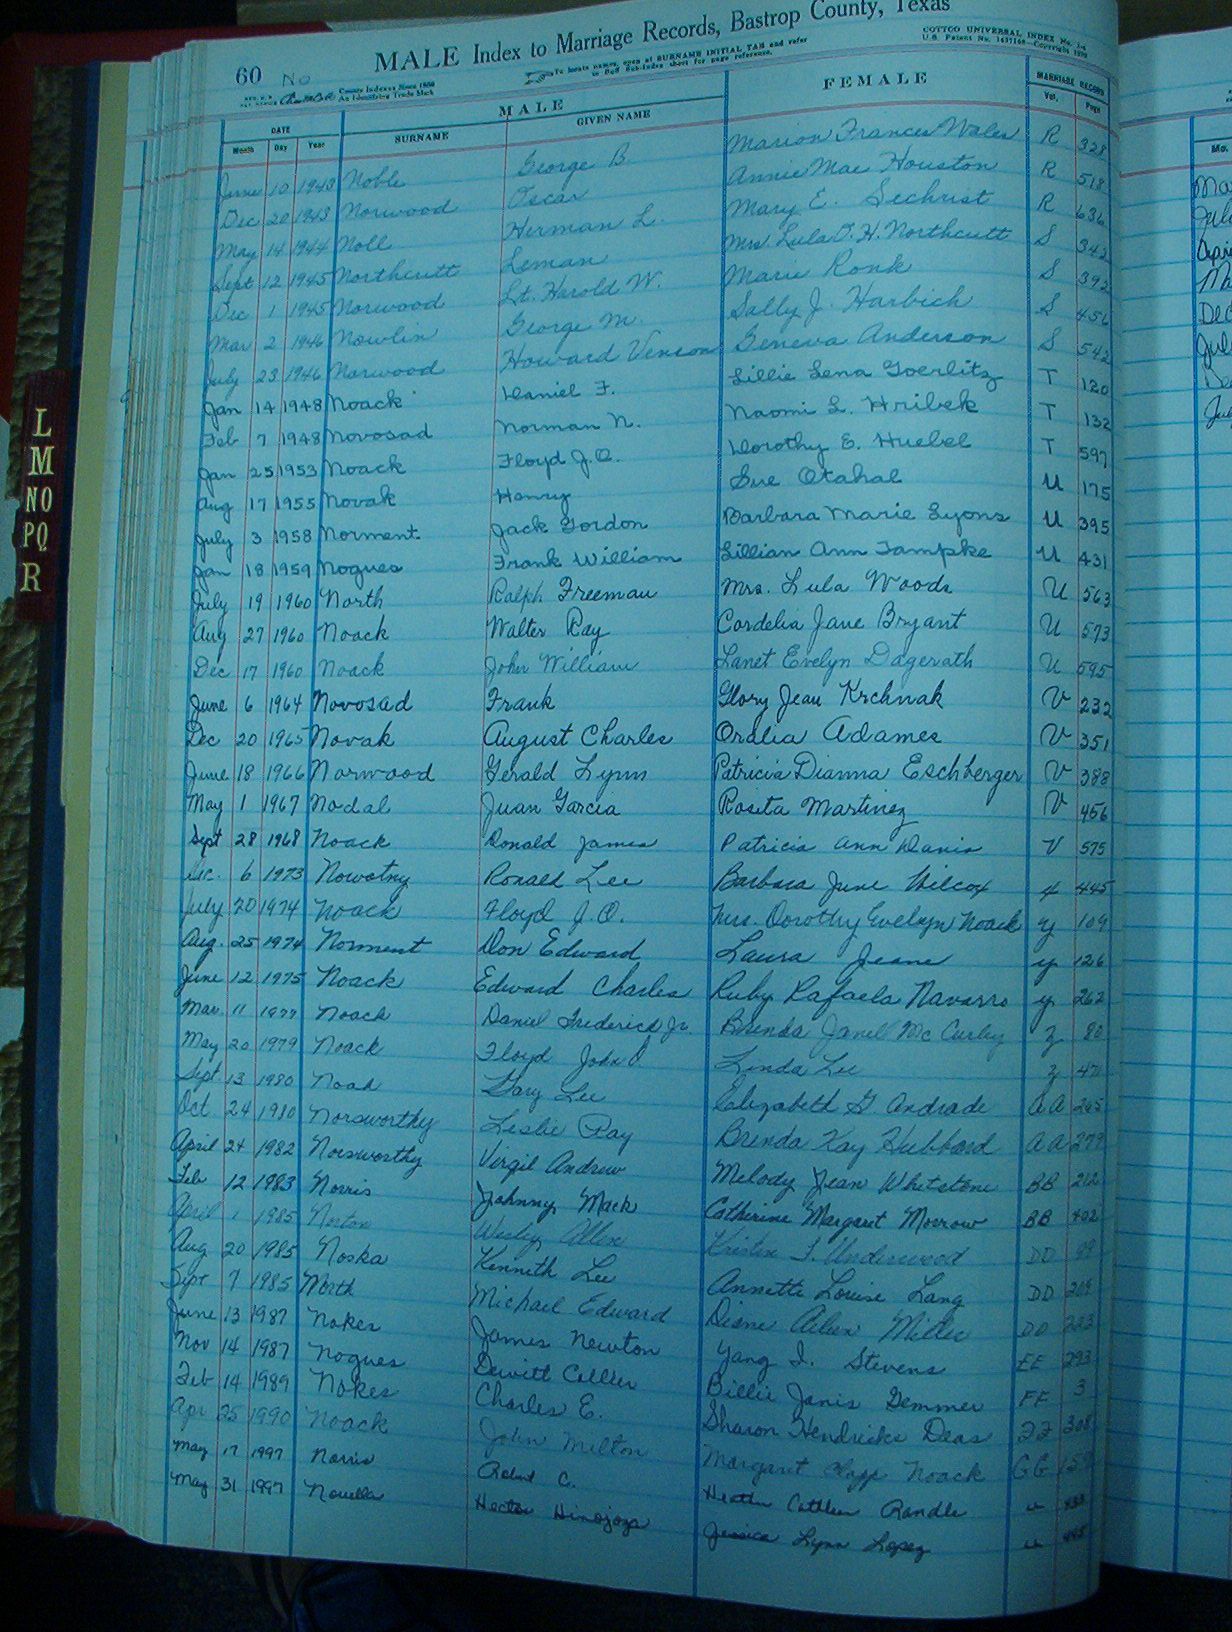 MALE Index to Marriage Records, Bastrop County, Texas
60 No
COTTCO UNIVERSAL INDEX No.
U.S. Patent No. Copyright
To locate names, open at SURNAME INITIAL TAB and refer
to Buff Sub-Index sheet for page reference.
County Indexes Since 1888
An Identifying Trade Mark
DATE MALE FEMALE MARRIAGE RECORD
Month Day Year SURNAME GIVEN NAME Vol. Page
June 10 1943 Noble George B. Marion Frances Wales R 328
Dec 20 1943 Norwood Oscar Annie Mae Houston R 518
May 14 1944 Noll Herman L. Mary E. Sechrist R 636
Sept 12 1945 Northcutt Leman Mrs Lula O. H. Northcutt S 342
Dec 1 1945 Norwood Lt. Harold W. Marie Ronk S 392
Mar 2 1946 Nowlin George M. Sally J. Harbich S 456
July 23 1946 Norwood Howard Venson Geneva Anderson S 542
Jan 14 1948 Noack Daniel F. Lillie Lena Goerlitz T 120
Feb 7 1948 Novosad Norman N. Naomi L. Hribek T 132
Jan 25 1953 Noack Floyd J.O. Dorothy E. Huebel T 597
Aug 17 1955 Novak Henry Sue Otahal U 175
July 3 1958 Norment Jack Gordon Barbara Marie Lyons U 395
Jan 18 1959 Nogues Frank William Lillian Ann Tampke U 431
July 19 1960 North Ralph Freeman Mrs. Lula Woods U 563
Aug 27 1960 Noack Walter Ray Cordelia Jane Bryant U 573
Dec 17 1960 Noack John William Lanet Evelyn Dagerath U 595
June 6 1964 Novosad Frank Glory Jean Krchnak V 232
Dec 20 1965 Novak August Charles Oralia Adames V 351
June 18 1966 Norwood Gerald Lynn Patricia Dianna Eschberger V 388
May 1 1967 Nodal Juan Garcia Rosita Martinez V 456
Sept 28 1968 Noack Donald James Patricia Ann Davis V 575
Dec. 6 1973 Nowotny Ronald Lee Barbara June Wilcox X 445
July 20 1974 Noack Floyd J.O. Mrs. Dorothy Evelyn Noack y 109
Aug. 25 1974 Norment Don Edward Laura Jeane y 126
June 12 1975 Noack Edward Charles Ruby Rafaela Navarro y 262
Mar. 11 1977 Noack Daniel Frederick Jr. Brenda Janell McCurley z 80
May 20 1979 Noack Floyd John O. Linda Lee z 471
Sept. 13 1980 Noah Gary Lee Elizabeth G Andrade AA 265
Oct 24 1910 Norsworthy Leslie Ray Brenda Kay Hubbard AA 279
April 24 1982 Norsworthy Virgil Andrew Melody Jean Whetstone BB 212
Feb 12 1983 Norris Johnny Mack Catherine Margaret Morrow BB 402
April 1 1985 Norton Wesley Allen Kristin L. Underwood DD 99
Aug 20 1985 Noska Kenneth Lee Annette Louise Lang DD 209
Sept 7 1985 North Michael Edward Diane Miller DD 223
June 13 1987 Nokes James Newton Yang I. Stevens EE 293
Nov 14 1987 Nogues Dewitt Collier Billie Janis Demmer FF 3
Feb 14 1989 Nokes Charles E. Sharon Hendricks Deas 308
Apr 25 1990 Noack John Milton Margaret Noack GG
May 17 1997 Norris C. Heather Cathleen Randle
May 31 1997 Hector Hinojosa Jessica Lynn Lopez
L
M
NO
PQ
R
Mo.